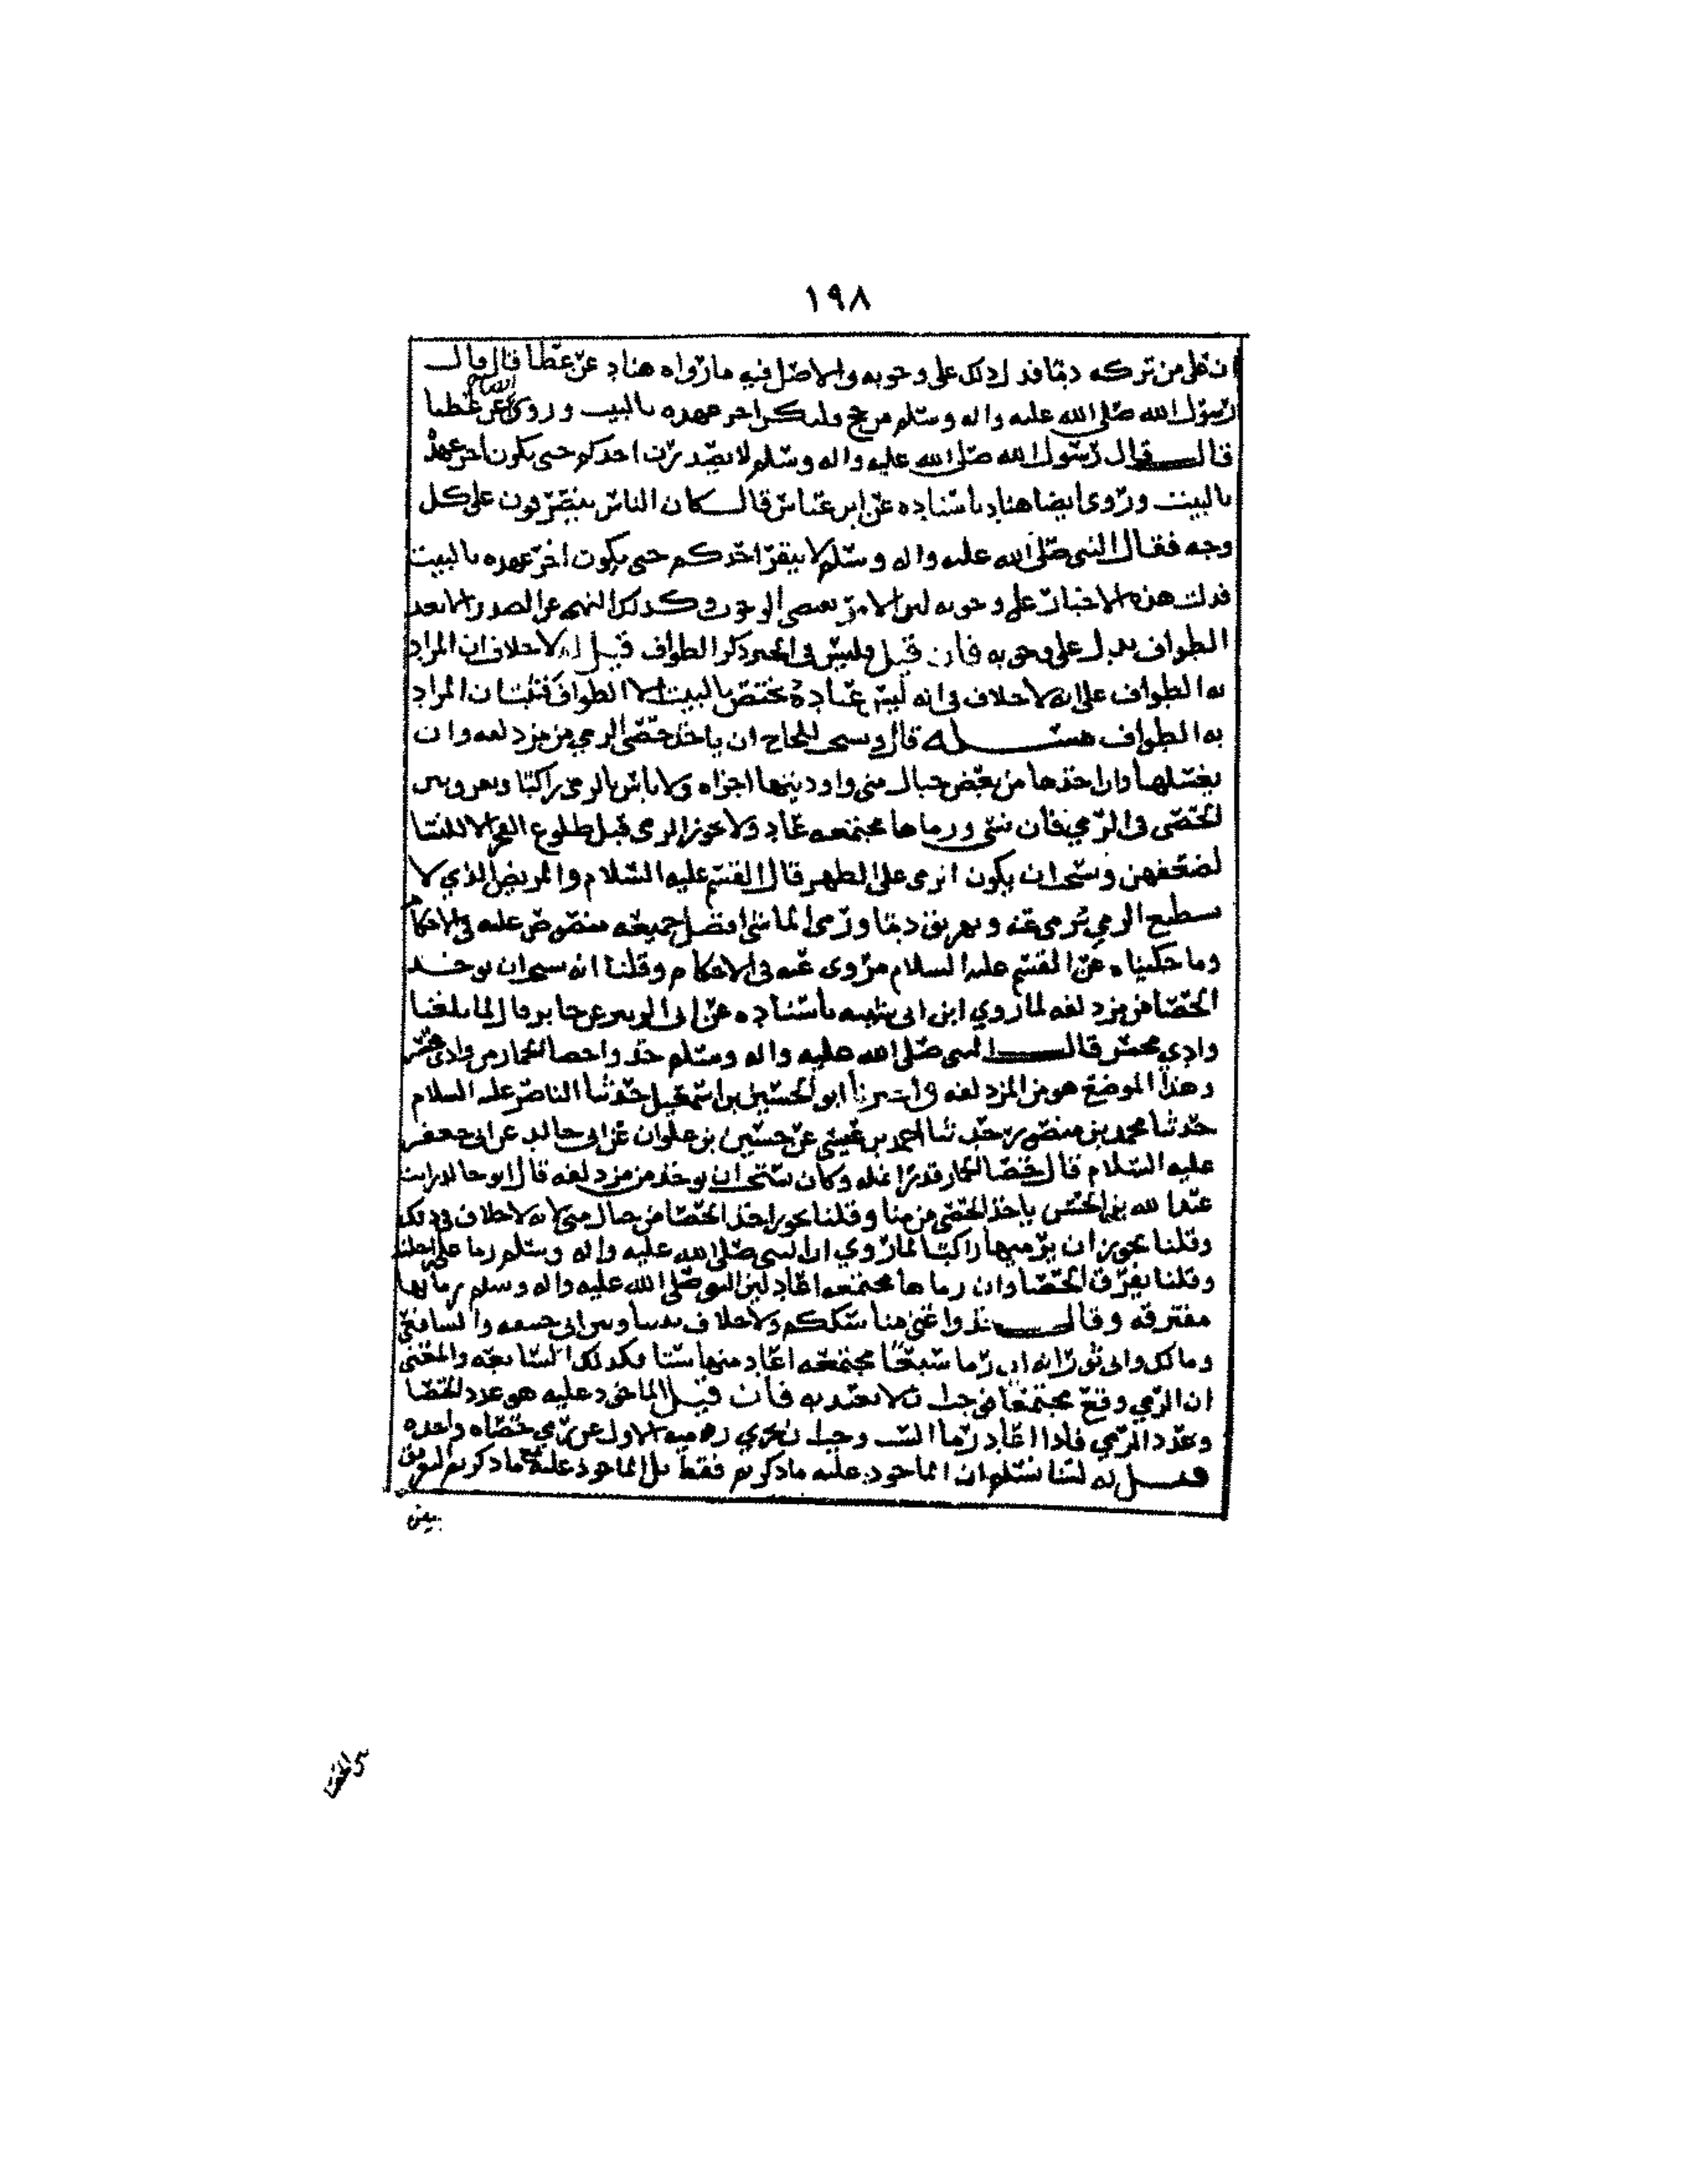 ١٩٨
ان على من تركه دمًا فدل ذلك على وجوبه والاصل فيه ما رواه هناد عن عطا قال قال
رسول الله صلى الله عليه واله وسلم من حج وليكن اخر عهده بالبيت وروى عن عطا
قال قال رسول الله صلى الله عليه واله وسلم لا يصدرن احدكم حتى يكون اخر عهده
بالبيت وروى ايضا هناد باسناده عن ابن عباس قال كان الناس ينصرفون على كل
وجه فقال النبي صلى الله عليه واله وسلم لا ينفر احدكم حتى يكون اخر عهده بالبيت
فدلت هذه الاخبار على وجوبه لان الامر يقتضي الوجوب وكذلك النهي عن الصدر الا بعد
الطواف يدل على وجوبه فان قيل وليس في الخبر ذكر الطواف قيل له لا خلاف ان المراد
به الطواف على انه لا خلاف في انه ليس عبادة تختص بالبيت الا الطواف فثبت ان المراد
به الطواف مسئلة قال ويستحب للحاج ان ياخذ حصى الرمي من مزدلفه وان
يغسلها وان اخذها من بعض جبال منى واوديتها اجزاه ولا باس بالرمي راكبًا ويفرق بين
الحصى في الرمي فان نسي ورماها مجتمعه عاد ولا يجوز الرمي قبل طلوع الفجر الا للنسا
لضعفهن ويستحب ان يكون الرمي على الطهر قال القسم عليه السلام والمريض الذي لا
يستطيع الرمي يرمى عنه ويهريق دمًا ورمي الماشي افضل جميعه منصوص عليه في الاحكام
وما حكيناه عن القسم عليه السلام مروى عنه في الاحكام وقلنا انه يستحب ان يوخذ
الحصا من مزدلفه لما روي ابن ابي شيبه باسناده عن ابي الزبير عن جابر قال لما بلغنا
وادي محسر قال النبي صلى الله عليه واله وسلم خذوا حصا الجمار من وادي محسر
وهذا الموضع هو من المزدلفه واخبرنا ابو الحسين بن اسمعيل حدثنا الناصر عليه السلام
حدثنا محمد بن منصور حدثنا احمد بن عيسى عن حسين بن علوان عن ابي خالد عن ابي جعفر
عليه السلام قال حصا الجمار قدر انمله وكان يستحب ان يوخذ من مزدلفه قال ابو خالد رايت
عبدا لله بن الحسن ياخذ الحصى من منا وقلنا يجوز اخذ الحصا من جبال منى لانه لا خلاف في ذلك
وقلنا يجوز ان يرميها راكبًا لما روي ان النبي صلى الله عليه واله وسلم رما على راحلته
وقلنا يفرق الحصا وان رماها مجتمعه اعاد لان النبي صلى الله عليه واله وسلم رماها
مفترقه وقال خذوا عني مناسككم ولا خلاف بيننا وبين ابي حنيفه والشافعي
ومالك وابي ثور انه ان رما سبعًا مجتمعه اعاد منها ستا فكذلك السابعه والمعنى
ان الرمي وقع مجتمعًا فوجب ان لا يعتد به فان قيل الماخوذ عليه هو عدد الحصا
وعدد الرمي فاذا اعاد رما الست وجب ان يجزي رميه الاول عن رمي حصاه واحده
قيل له لسنا نسلم ان الماخوذ عليه ما ذكرتم فقط بل الماخوذ عليه مع ما ذكرتم التفريق
بينن